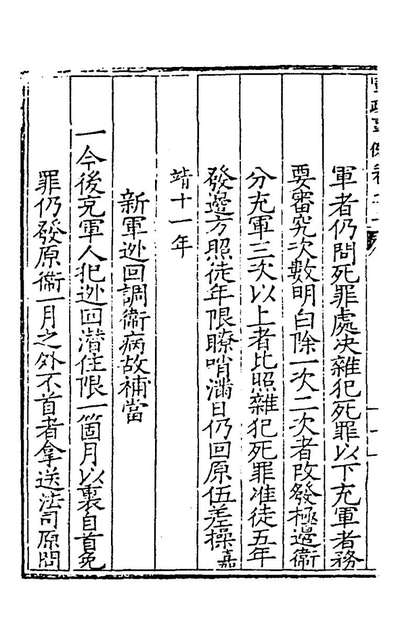 軍者仍問死罪處决雜犯死罪以下充軍者務
要審究次數明白除一次二次者改發極邉衞
分充軍三次以上者比照雜犯死罪准徒五年
發邉方照徒年限瞭哨滿日仍回原伍差操嘉
靖十一年
新軍迯回調衞病故補當
一今後充軍人犯迯回潜住限一箇月以裏自首免
罪仍發原衞一月之外不首者拿送法司原問